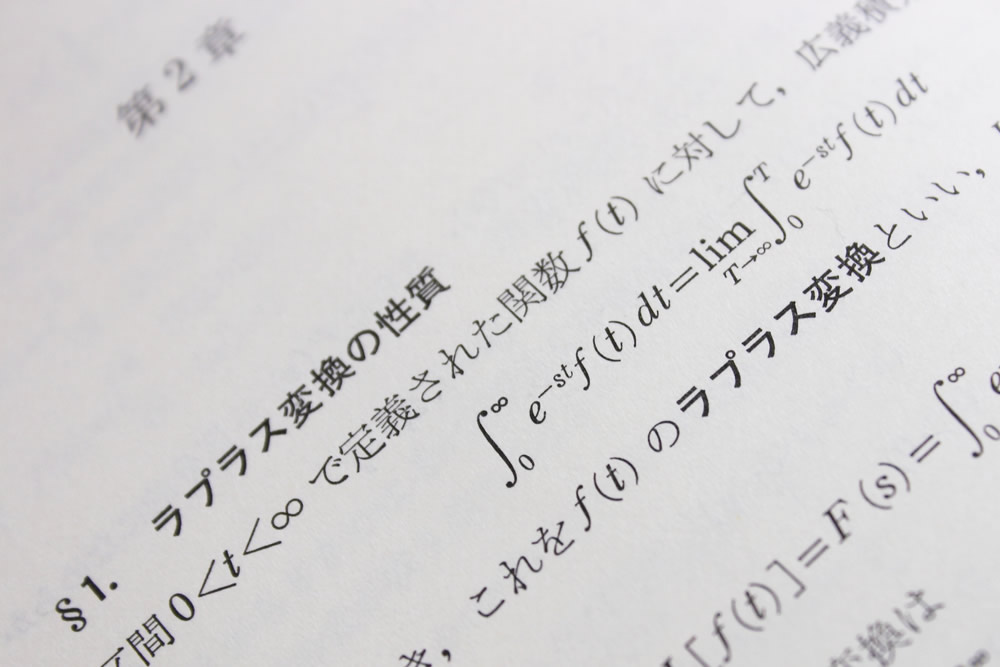 第2章
§1. ラプラス変換の性質
区間 0<t<∞ で定義された関数 f(t) に対して, 広義積
∫₀^∞ e^{-st}f(t)dt=lim_{T→∞}∫₀^T e^{-st}f(t)dt
き, これを f(t) のラプラス変換といい,
[f(t)]=F(s)=∫₀^∞ e
変換は